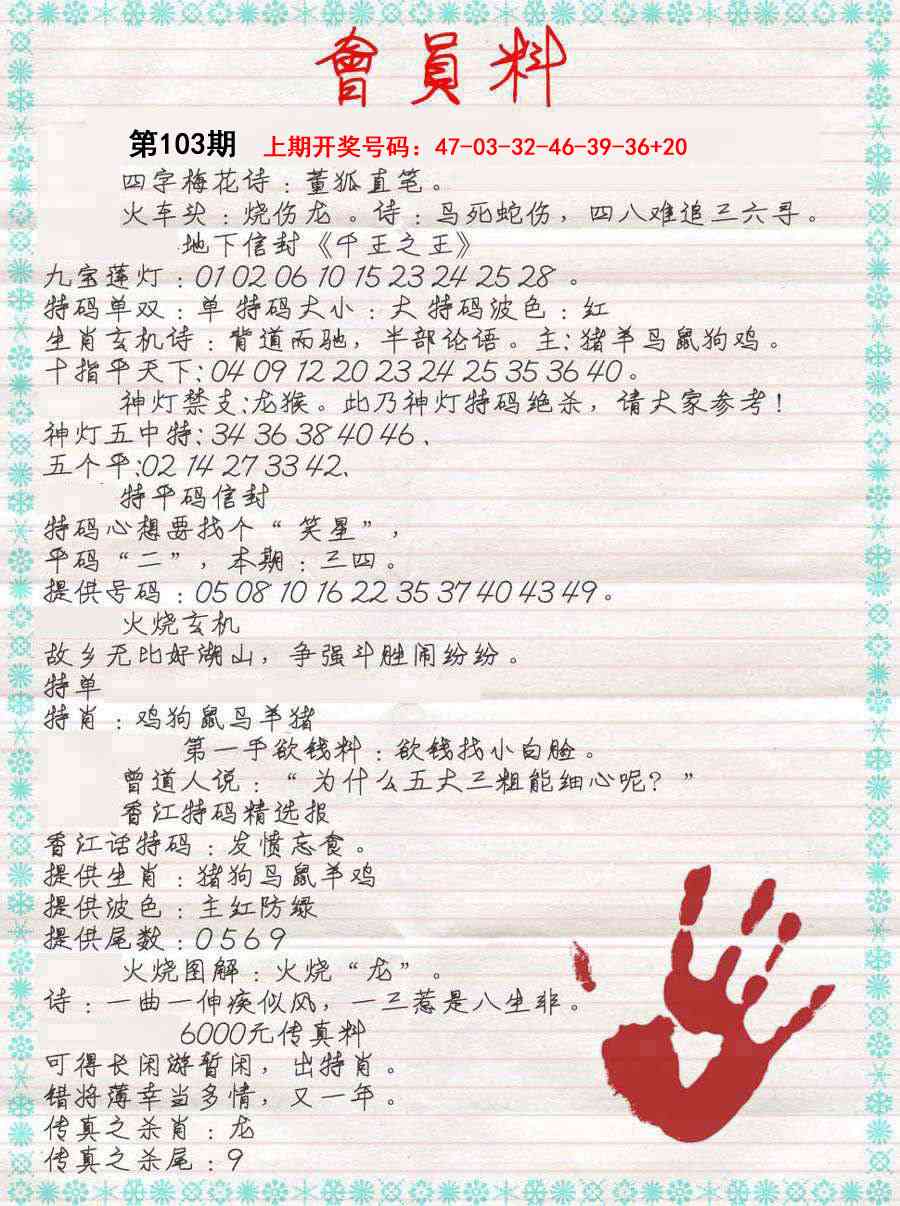 會員料
第103期 上期开奖号码：47-03-32-46-39-36+20
四字梅花诗：董狐直笔。
火车头：烧伤龙。诗：鸟死蛇伤，四八难追三六寻。
地下信封《千王之王》
九宝莲灯：01 02 06 10 15 23 24 25 28 。
特码单双：单 特码大小：大 特码波色：红
生肖玄机诗：背道而驰，半部论语。主:猪羊马鼠狗鸡。
十指平天下:04 09 12 20 23 24 25 35 36 40。
神灯禁支:龙猴。此乃神灯特码绝杀，请大家参考!
神灯五中特:34 36 38 40 46、
五个平:02 14 27 33 42、
特平码信封
特码心想要找个“笑星”，
平码“二”，本期：三四。
提供号码：05 08 10 16 22 35 37 40 43 49。
火烧玄机
故乡无比好湖山，争强斗胜闹纷纷。
特单
特肖：鸡狗鼠马羊猪
第一手欲钱料：欲钱找小白脸。
曾道人说：“为什么五大三粗能细心呢？”
香江特码精选报
香江话特码：发愤忘食。
提供生肖：猪狗马鼠羊鸡
提供波色：主红防绿
提供尾数：0 5 6 9
火烧图解：火烧“龙”。
诗：一曲一伸疾似风，一三惹是八生非。
6000元传真料
可得长闲游暂闲，出特肖。
错将薄幸当多情，又一年。
传真之杀肖：龙
传真之杀尾：9